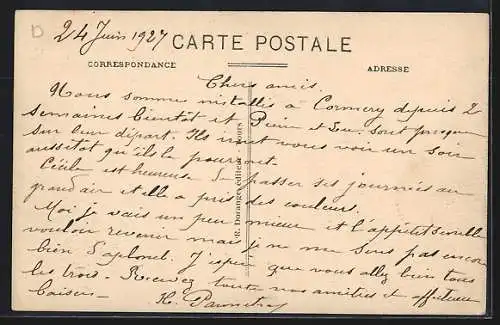 24 Juin 1927
CARTE POSTALE
CORRESPONDANCE
ADRESSE
Chers amis.
Nous sommes installés à Cormery depuis 2
semaines bientôt et Pierre et sont presque
sur leur départ. Ils iront vous voir un soir
aussitôt qu'ils le pourront
Cécile est heureuse de passer ses journées au
grand air et elle a pris des couleurs.
Moi je vais un peu mieux et l'appétit semble
vouloir revenir mais je ne me sens pas encore
bien d'aplomb. J'espère que vous allez bien tous
les trois. Recevez toutes nos amitiés et affectueux
baisers—
H.
Dorange, éditeur, Tours